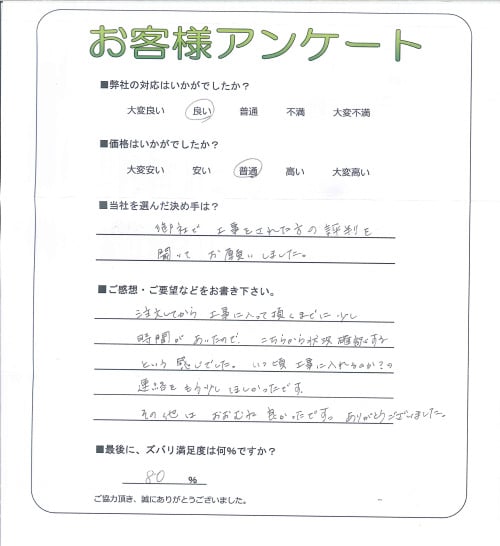 お客様アンケート
■弊社の対応はいかがでしたか？
大変良い 良い 普通 不満 大変不満
■価格はいかがでしたか？
大変安い 安い 普通 高い 大変高い
■当社を選んだ決め手は？
御社で 工事をされた方の 評判を
聞いて お願いしました。
■ご感想・ご要望などをお書き下さい。
注文してから 工事に入って頂くまでに 少し
時間が あいたので、こちらから状況確認する
という 感じでした。いつ頃 工事に入れるのか？の
連絡を もう少し ほしかったです。
その他は おおむね 良かったです。ありがとうございました。
■最後に、ズバリ満足度は何%ですか？
80 %
ご協力頂き、誠にありがとうございました。